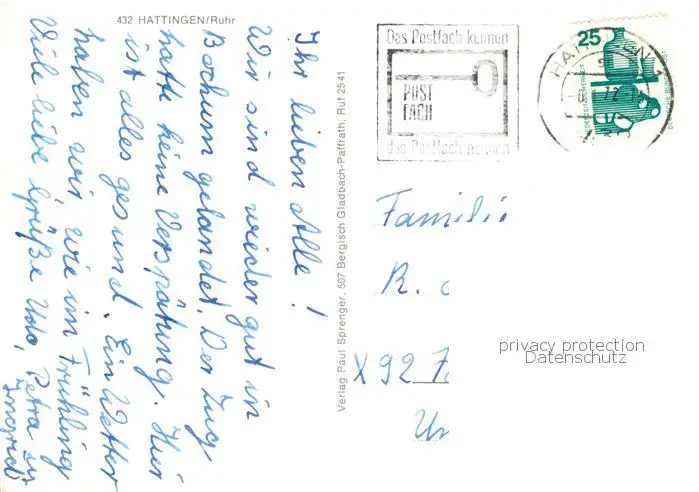 432 HATTINGEN/Ruhr
Ihr lieben Alle!
Wir sind wieder gut in
Bochum gelandet. Der Zug
hatte keine Verspätung. Hier
ist alles gesund. Ein Wetter
haben wir wie im Frühling
Viele liebe Grüße Udo, Petra u.
Ingrid
Verlag Paul Sprenger, 507 Bergisch Gladbach-Paffrath, Ruf 2541
Das Postfach kennen
POST
FACH
das Postfach nennen
HATTINGEN
25
Familie
R.
X927
privacy protection
Datenschutz